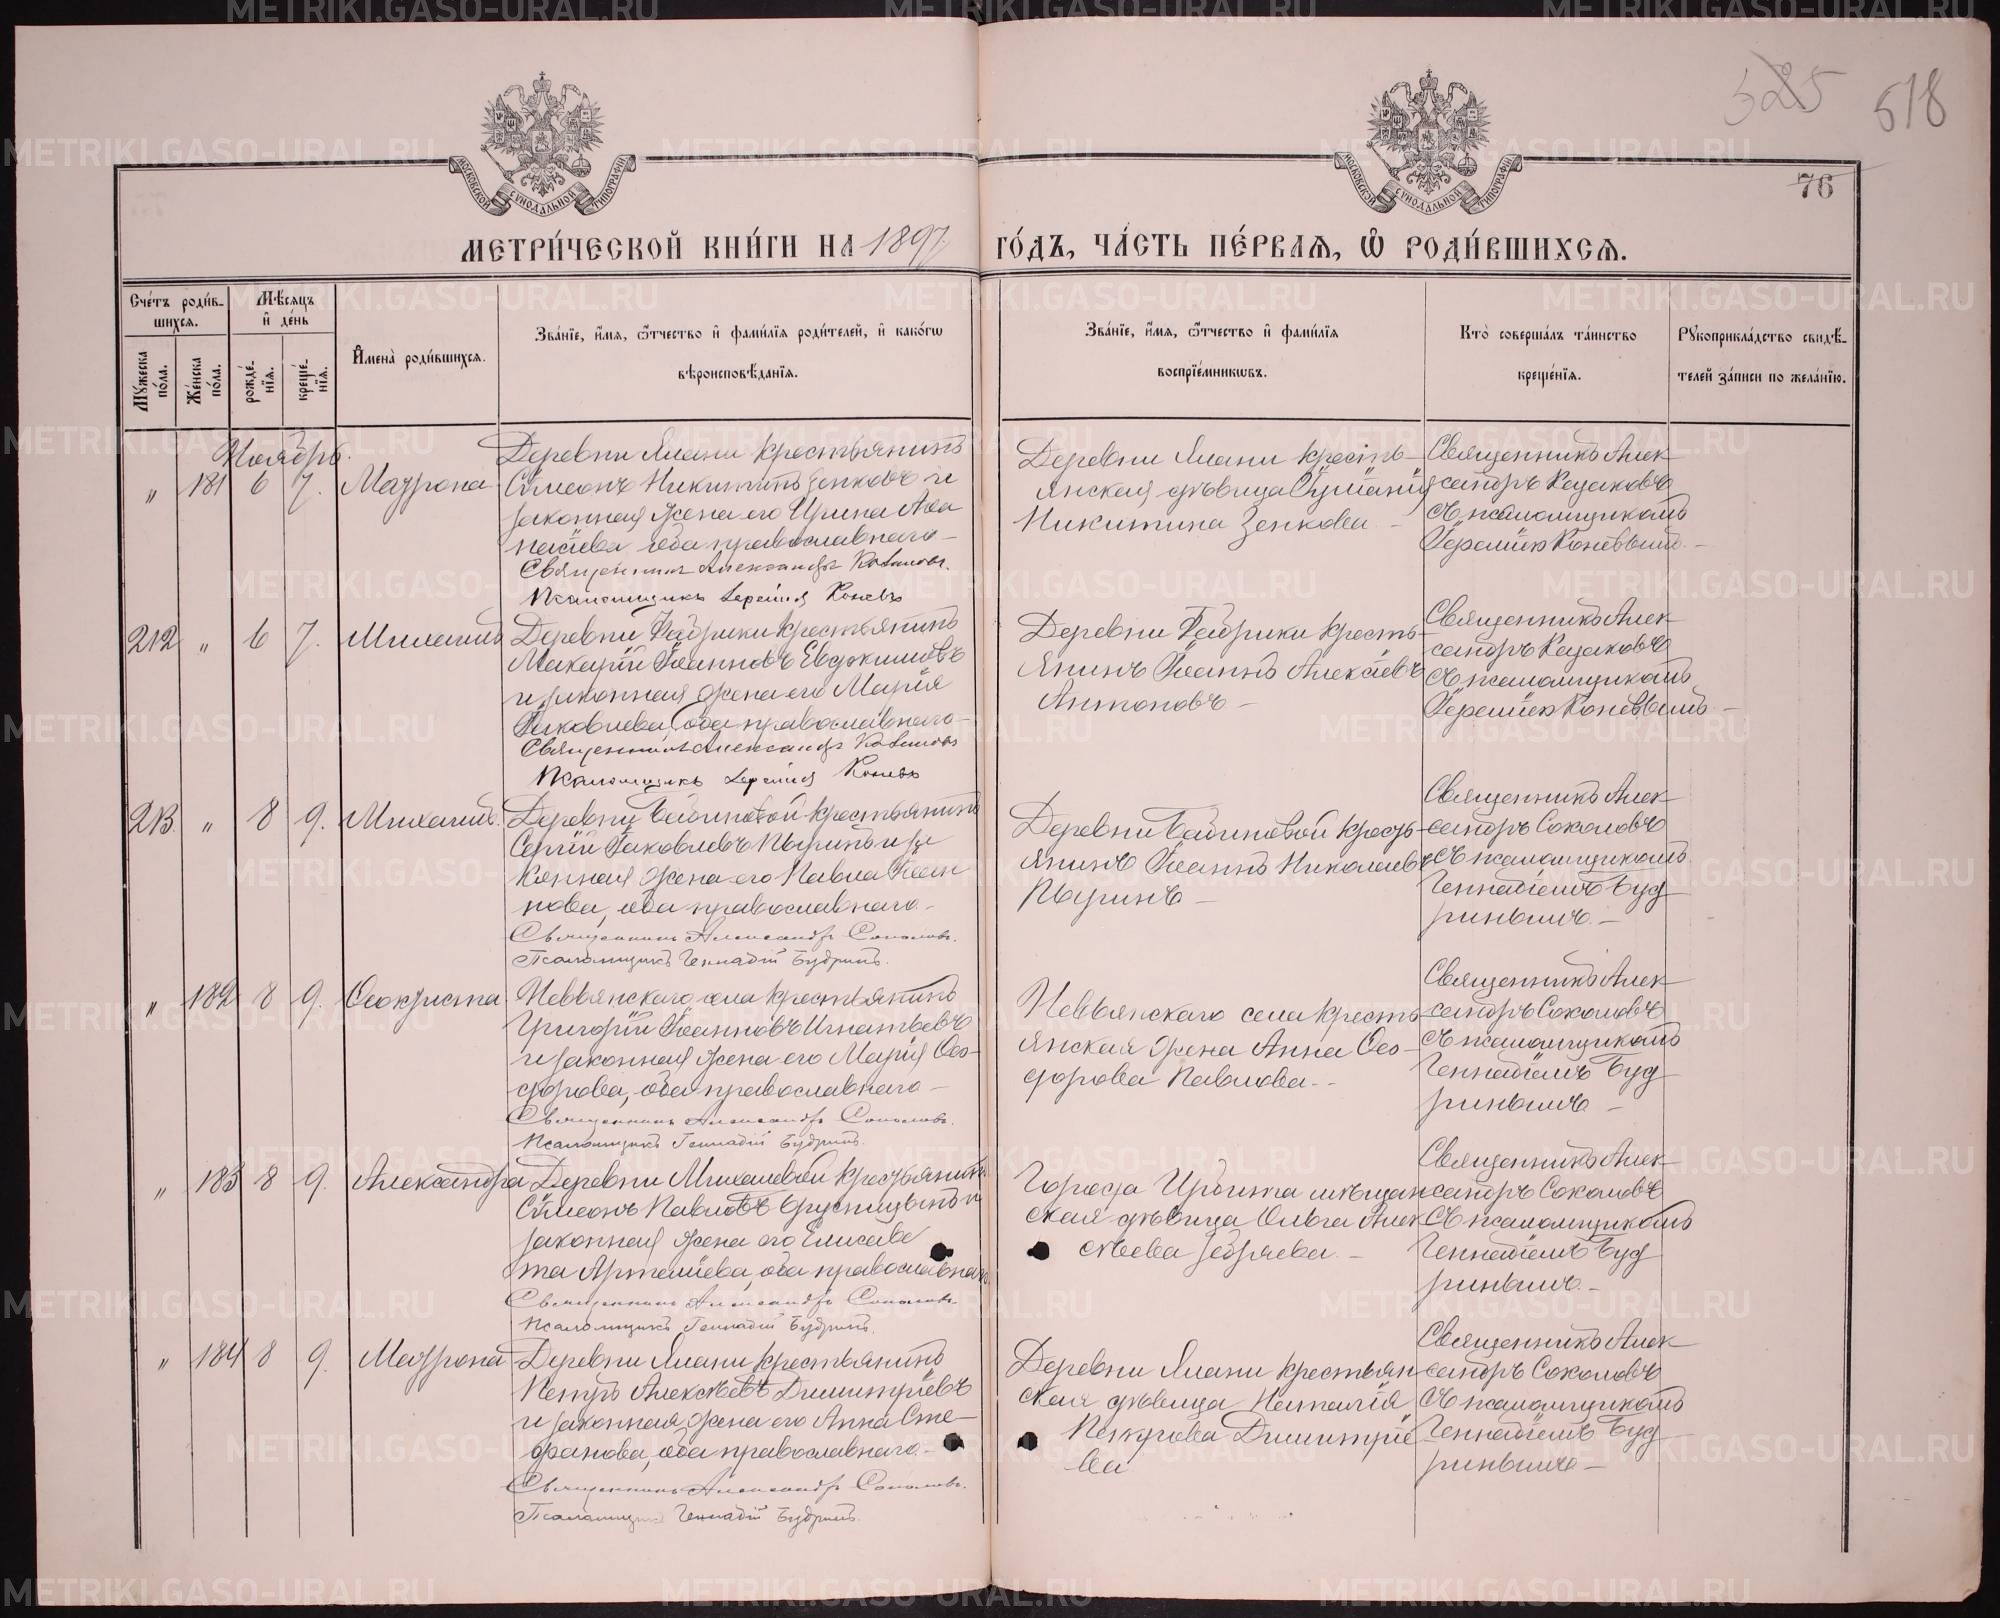 525 518
76
МОСКОВСКОЙ СѴНОДАЛЬНОЙ ТИПОГРАФІИ
МОСКОВСКОЙ СѴНОДАЛЬНОЙ ТИПОГРАФІИ
МЕТРИ́ЧЕСКОЙ КНИ́ГИ НА 1897 ГО́ДЪ, ЧА́СТЬ ПЕ́РВАЯ, Ѽ РОДИ́ВШИХСЯ.
Сче́тъ роди́в-
шихся.
Мѣ́сяцъ
и҆ де́нь
Мꙋ́жеска по́ла.
Же́нска по́ла.
рожде́нїя.
креще́нїя.
И҆мена̀ роди́вшихся.
Зва́нїе, и҆́мя, ѻ҆́тчество и҆ фами́лїя роди́телей, и҆ како́гѡ
вѣроисповѣ́данїя.
Зва́нїе, и҆́мя, ѻ҆́тчество и҆ фами́лїя
воспрїе́мникѡвъ.
Кто̀ соверша́лъ та́инство
креще́нїя.
Рꙋкоприкла́дство свидѣ́-
телей за́писи по жела́нїю.
Ноябрь.
„ 181 6 7. Матрона
Деревни Ялани крестьянинъ
Сѵмеонъ Никитинъ Зенковъ и
законная жена его Ирина Аѳа
насіева, оба православнаго –
Священникъ Александръ Казаковъ.
Псаломщикъ Іеремія Коневъ
Деревни Ялани кресть–
янская дѣвица
Никитина Зенкова –
Священникъ Алек
сандръ Казаковъ
съ псаломщикомъ
Іереміею Коневымъ. –
212 „ 6 7. Михаилъ
Деревни Фабрики крестьянинъ
Макарій Іоанновъ Евдокимовъ
и законная жена его Марія
Іаковлева, оба православнаго –
Священникъ Александръ Казаковъ
Псаломщикъ Іеремія Коневъ
Деревни Фабрики кресть–
янинъ Іоаннъ Алексіевъ
Антоновъ –
Священникъ Алек
сандръ Казаковъ
съ псаломщикомъ
Іереміею Коневымъ –
213. „ 8 9. Михаилъ.
Деревни Бобиновой крестьянинъ
Сергій Іаковлевъ Пыринъ и за
конная жена его Павла Іоан
нова, оба православнаго –
Священникъ Александръ Соколовъ.
Псаломщикъ Геннадій Будринъ.
Деревни Бобиновой кресть–
янинъ Іоаннъ Николаевъ
Пыринъ –
Священникъ Алек
сандръ Соколовъ
съ псаломщикомъ
Геннадіемъ Буд
ринымъ. –
„ 182 8 9. Ѳеоктиста
Невьянскаго села крестьянинъ
Григорій Іоанновъ Игнатьевъ
и законная жена его Марія Ѳео–
дорова, оба православнаго –
Священникъ Александръ Соколовъ.
Псаломщикъ Геннадій Будринъ.
Невьянскаго села кресть–
янская жена Анна Ѳео–
дорова Павлова. –
Священникъ Алек
сандръ Соколовъ
съ псаломщикомъ
Геннадіемъ Буд
ринымъ –
„ 183 8 9. Александра
Деревни Михалевой крестьянинъ
Сѵмеонъ Павловъ Брусницынъ и
законная жена его Елисаве
та Артеміева, оба православнаго.
Священникъ Александръ Соколовъ.
Псаломщикъ Геннадій Будринъ.
Города Ирбита мѣщан
ская дѣвица Ольга Алек
сѣева –
Священникъ Алек
сандръ Соколовъ
съ псаломщикомъ
Геннадіемъ Буд
ринымъ. –
„ 184 8 9. Матрона
Деревни Ялани крестьянинъ
Петръ Алексѣевъ Димитріевъ
и законная жена его Анна Сте–
фанова, оба православнаго. –
Священникъ Александръ Соколовъ.
Псаломщикъ Геннадій Будринъ.
Деревни Ялани крестьян
ская дѣвица Наталія
Петрова Димитріе
ва
Священникъ Алек
сандръ Соколовъ
съ псаломщикомъ
Геннадіемъ Буд
ринымъ –
METRIKI.GASO-URAL.RU